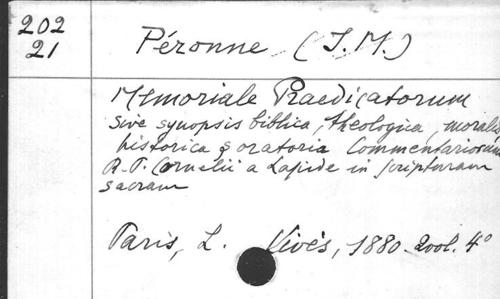 202
21
Péronne (J.M.)
Memoriale Praedicatorum
sive synopsis biblica, theologica, moralis
historica & oratoria Commentariorum
R.P. Cornelii a Lapide in scripturam
sacram
Paris, L. Vivès, 1880. 2vol. 4°